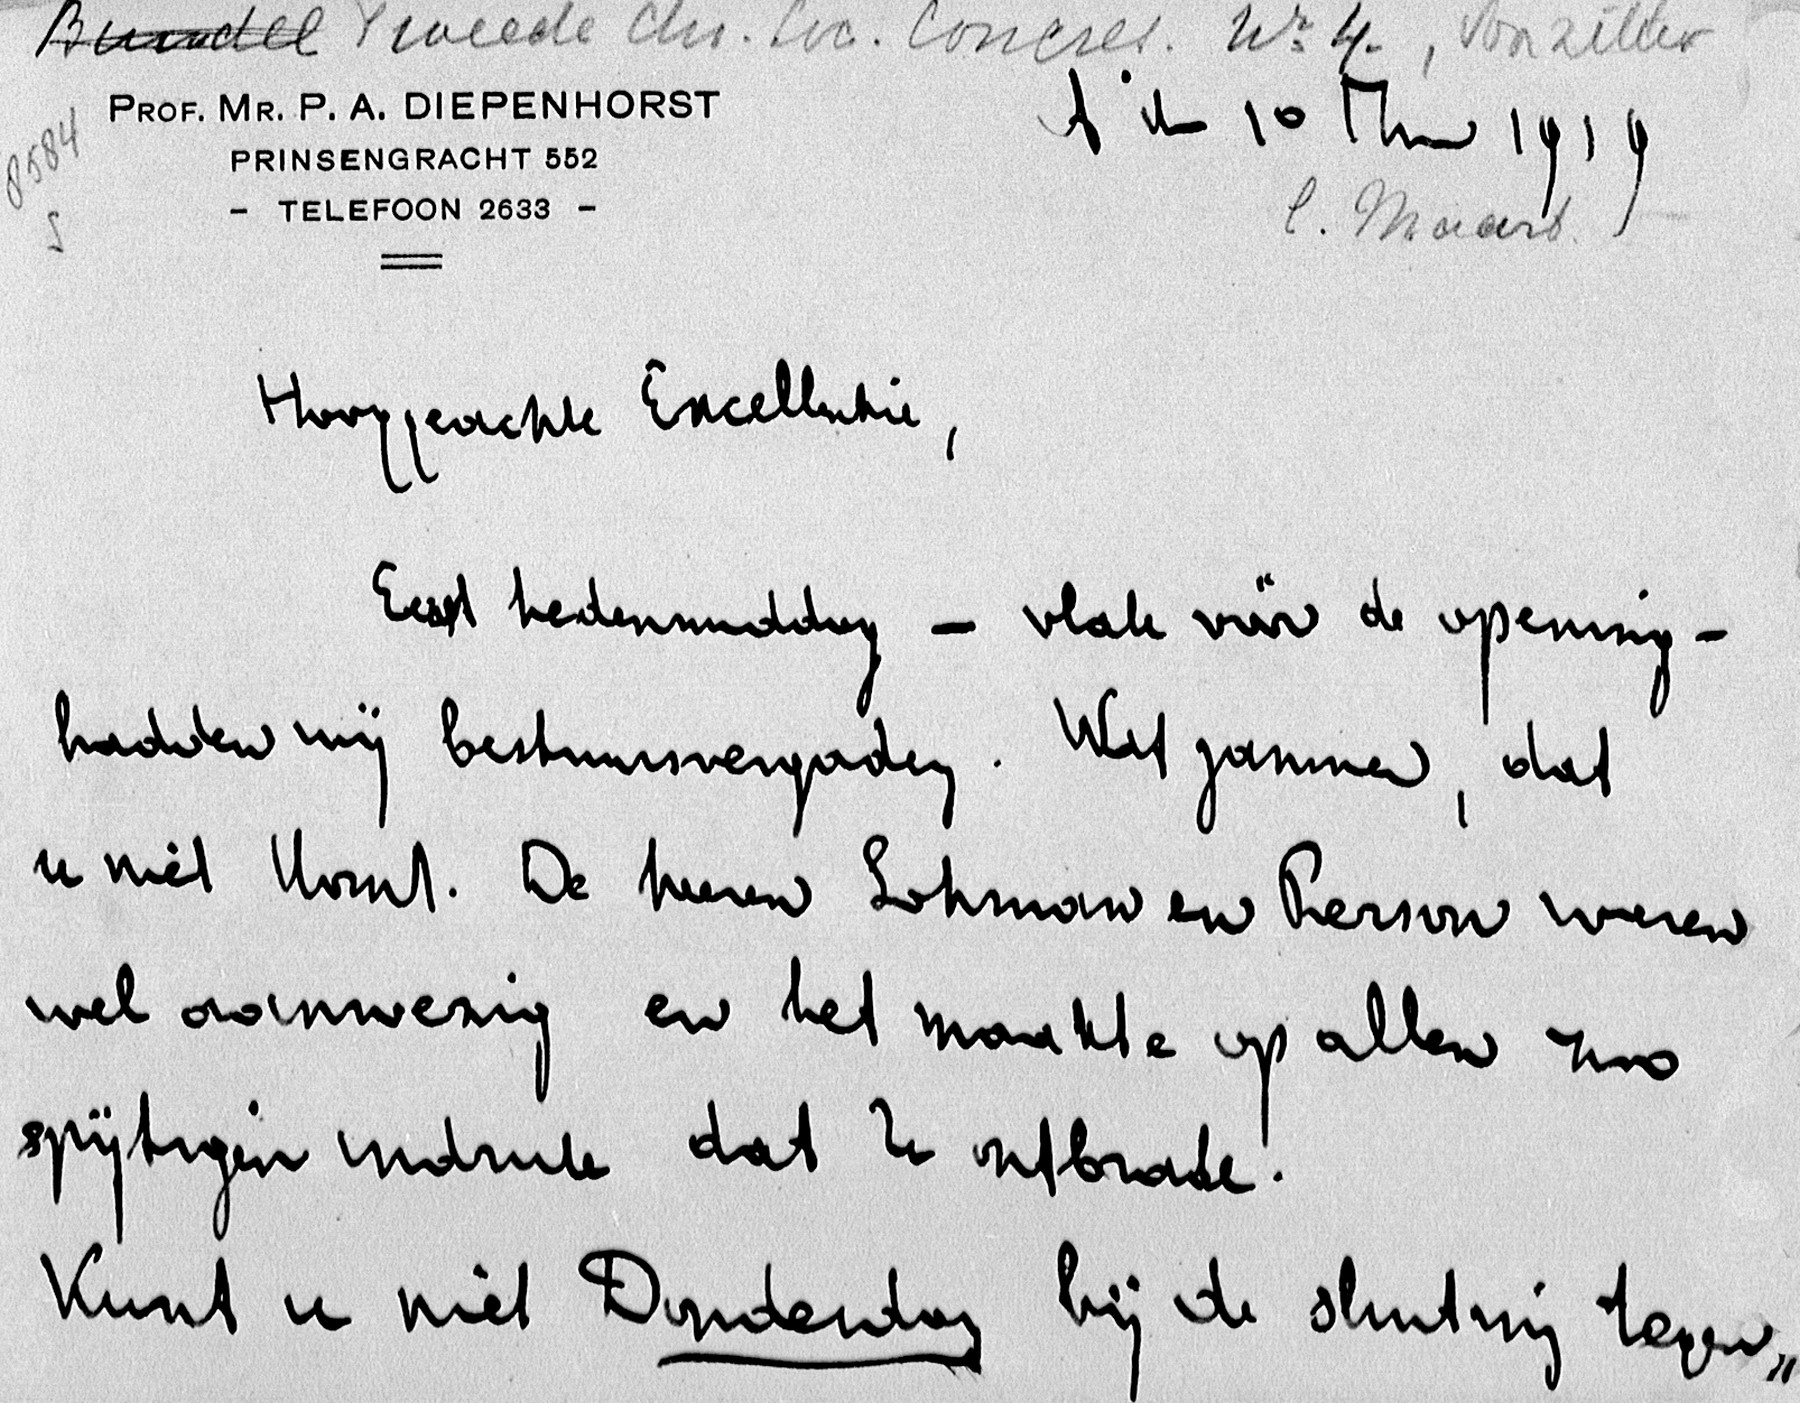 Bundel Tweede Chr. Soc. Congres. Nr 4., Voorzitter
8584
S
PROF. MR. P. A. DIEPENHORST
PRINSENGRACHT 552
- TELEFOON 2633 -
A'dam 10 1919
C. Maart.
Hooggeachte Excellentie,
Eerst hedenmiddag — vlak vóór de opening —
hadden wij bestuursvergaderg. Wat jammer, dat
u niet komt. De heeren Lohman en Pierson waren
wel aanwezig en het maakte op allen zoo
spijtigen indruk dat U ontbrak.
Kunt u niet Donderdag bij de sluiting tegen„